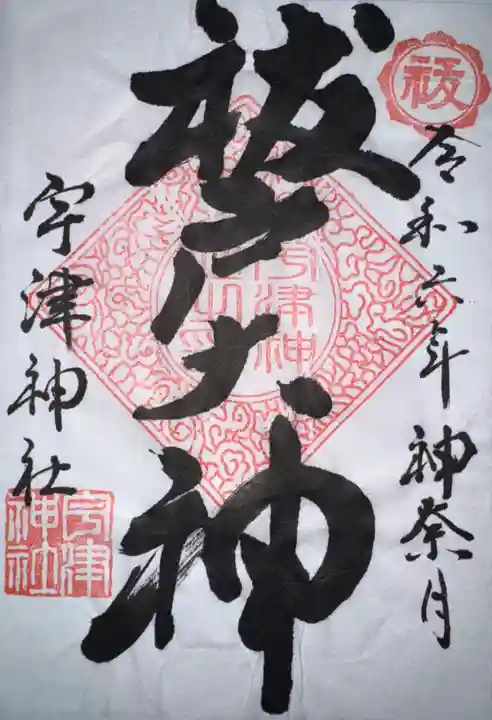 祓
令和六年 神奈月
祓戸大神
宇津神
宇津神社
宇津神社